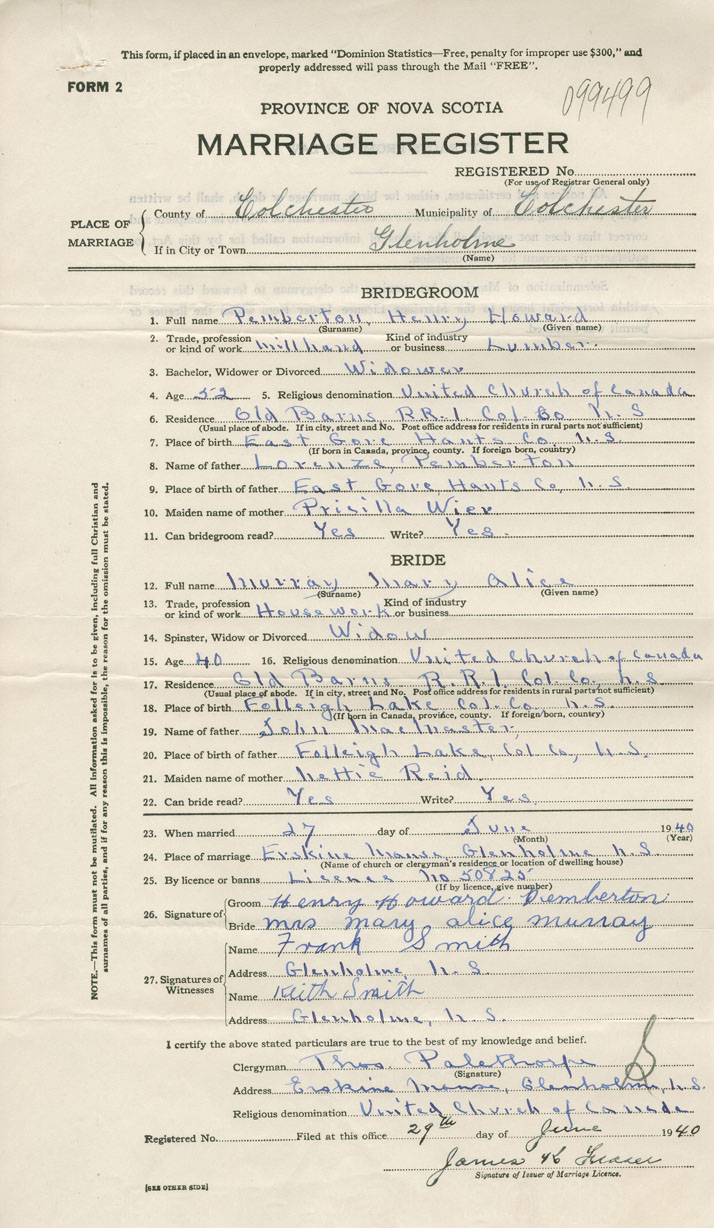 This form, if placed in an envelope, marked "Dominion Statistics—Free, penalty for improper use $300," and
properly addressed will pass through the Mail "FREE".
FORM 2
099499
PROVINCE OF NOVA SCOTIA
MARRIAGE REGISTER
REGISTERED No.
(For use of Registrar General only)
PLACE OF MARRIAGE
County of Colchester Municipality of Colchester
If in City or Town Glenholme
(Name)
BRIDEGROOM
1. Full name Pemberton, Henry Howard
(Surname) (Given name)
2. Trade, profession or kind of work Millhand Kind of industry or business Lumber.
3. Bachelor, Widower or Divorced Widower
4. Age 52 5. Religious denomination United Church of Canada
6. Residence Old Barns R.R.1. Col. Co N.S
(Usual place of abode. If in city, street and No. Post office address for residents in rural parts not sufficient)
7. Place of birth East Gore Hants Co, N.S.
(If born in Canada, province, county. If foreign born, country)
8. Name of father Lorenze Pemberton
9. Place of birth of father East Gore Hants Co, N.S
10. Maiden name of mother Prisilla Wier
11. Can bridegroom read? Yes Write? Yes.
BRIDE
12. Full name Murray Mary Alice
(Surname) (Given name)
13. Trade, profession or kind of work Housework Kind of industry or business
14. Spinster, Widow or Divorced Widow
15. Age 40 16. Religious denomination United Church of Canada
17. Residence Old Barns R.R.1. Col. Co, N.S.
(Usual place of abode. If in city, street and No. Post office address for residents in rural parts not sufficient)
18. Place of birth Folleigh Lake Col. Co, N.S.
(If born in Canada, province, county. If foreign born, country)
19. Name of father John MacMaster,
20. Place of birth of father Folleigh Lake, Col Co, N.S.
21. Maiden name of mother Nettie Reid.
22. Can bride read? Yes Write? Yes.
23. When married 27 day of June 1940
(Month) (Year)
24. Place of marriage Erskine Manse, Glenholme N.S
(Name of church or clergyman's residence or location of dwelling house)
25. By licence or banns Licence No 50825
(If by licence, give number)
26. Signature of
Groom Henry Howard Pemberton
Bride Mrs Mary Alice Murray
27. Signatures of Witnesses
Name Frank Smith
Address Glenholme, N.S.
Name Keith Smith
Address Glenholme, N.S.
I certify the above stated particulars are true to the best of my knowledge and belief.
Clergyman Thos. Palethorpe
(Signature)
Address Erskine Manse, Glenholme, N.S.
Religious denomination United Church of Canada
Registered No. Filed at this office 29th day of June 1940
James Fraser
Signature of Issuer of Marriage Licence.
[SEE OTHER SIDE]
NOTE.—This form must not be mutilated. All information asked for is to be given, including full Christian and
surnames of all parties, and if for any reason this is impossible, the reason for the omission must be stated.